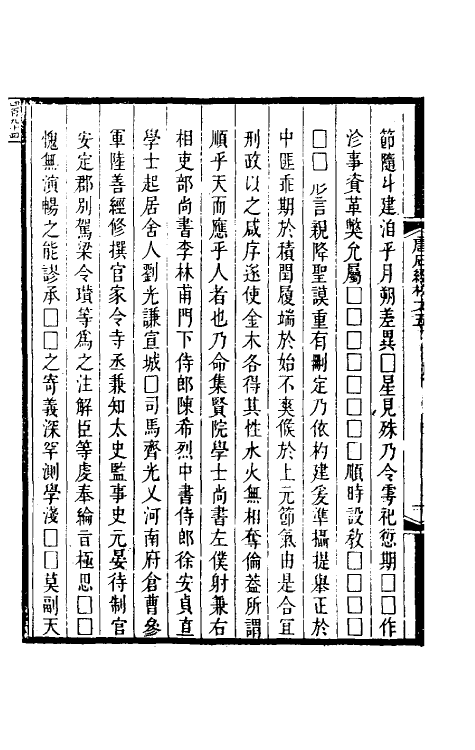 節隨斗建洎乎月朔差異□星見殊乃令雩祀愆期□□作
沴事資革獘允屬□□□□□□□□順時設教□□□□
□□ 言親降聖謨重有刪定乃依杓建爰準攝提舉正於
中匪乖期於積閏履端於始不爽候於上元節氣由是合宜
刑政以之咸序遂使金木各得其性水火無相奪倫葢所謂
順乎天而應乎人者也乃命集賢院學士尚書左僕射兼右
相吏部尚書李林甫門下侍郎陳希烈中書侍郎徐安貞直
學士起居舍人劉光謙宣城□司馬齊光乂河南府倉曹參
軍陸善經修撰官家令寺丞兼知太史監事史元晏待制官
安定郡別駕梁令瓚等爲之注解臣等虔奉綸言極思□□
愧無演暢之能謬承□□之寄義深罕測學淺□□莫副天
唐石經校文五